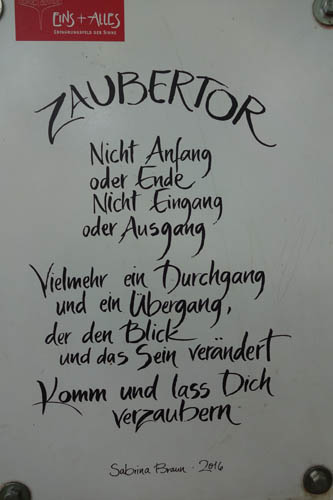 EINS+ALLES
ERFAHRUNGSFELD DER SINNE
ZAUBERTOR
Nicht Anfang
oder Ende
Nicht Eingang
oder Ausgang
Vielmehr ein Durchgang
und ein Übergang,
der den Blick
und das Sein verändert
Komm und lass Dich
verzaubern
Sabrina Braun · 2016